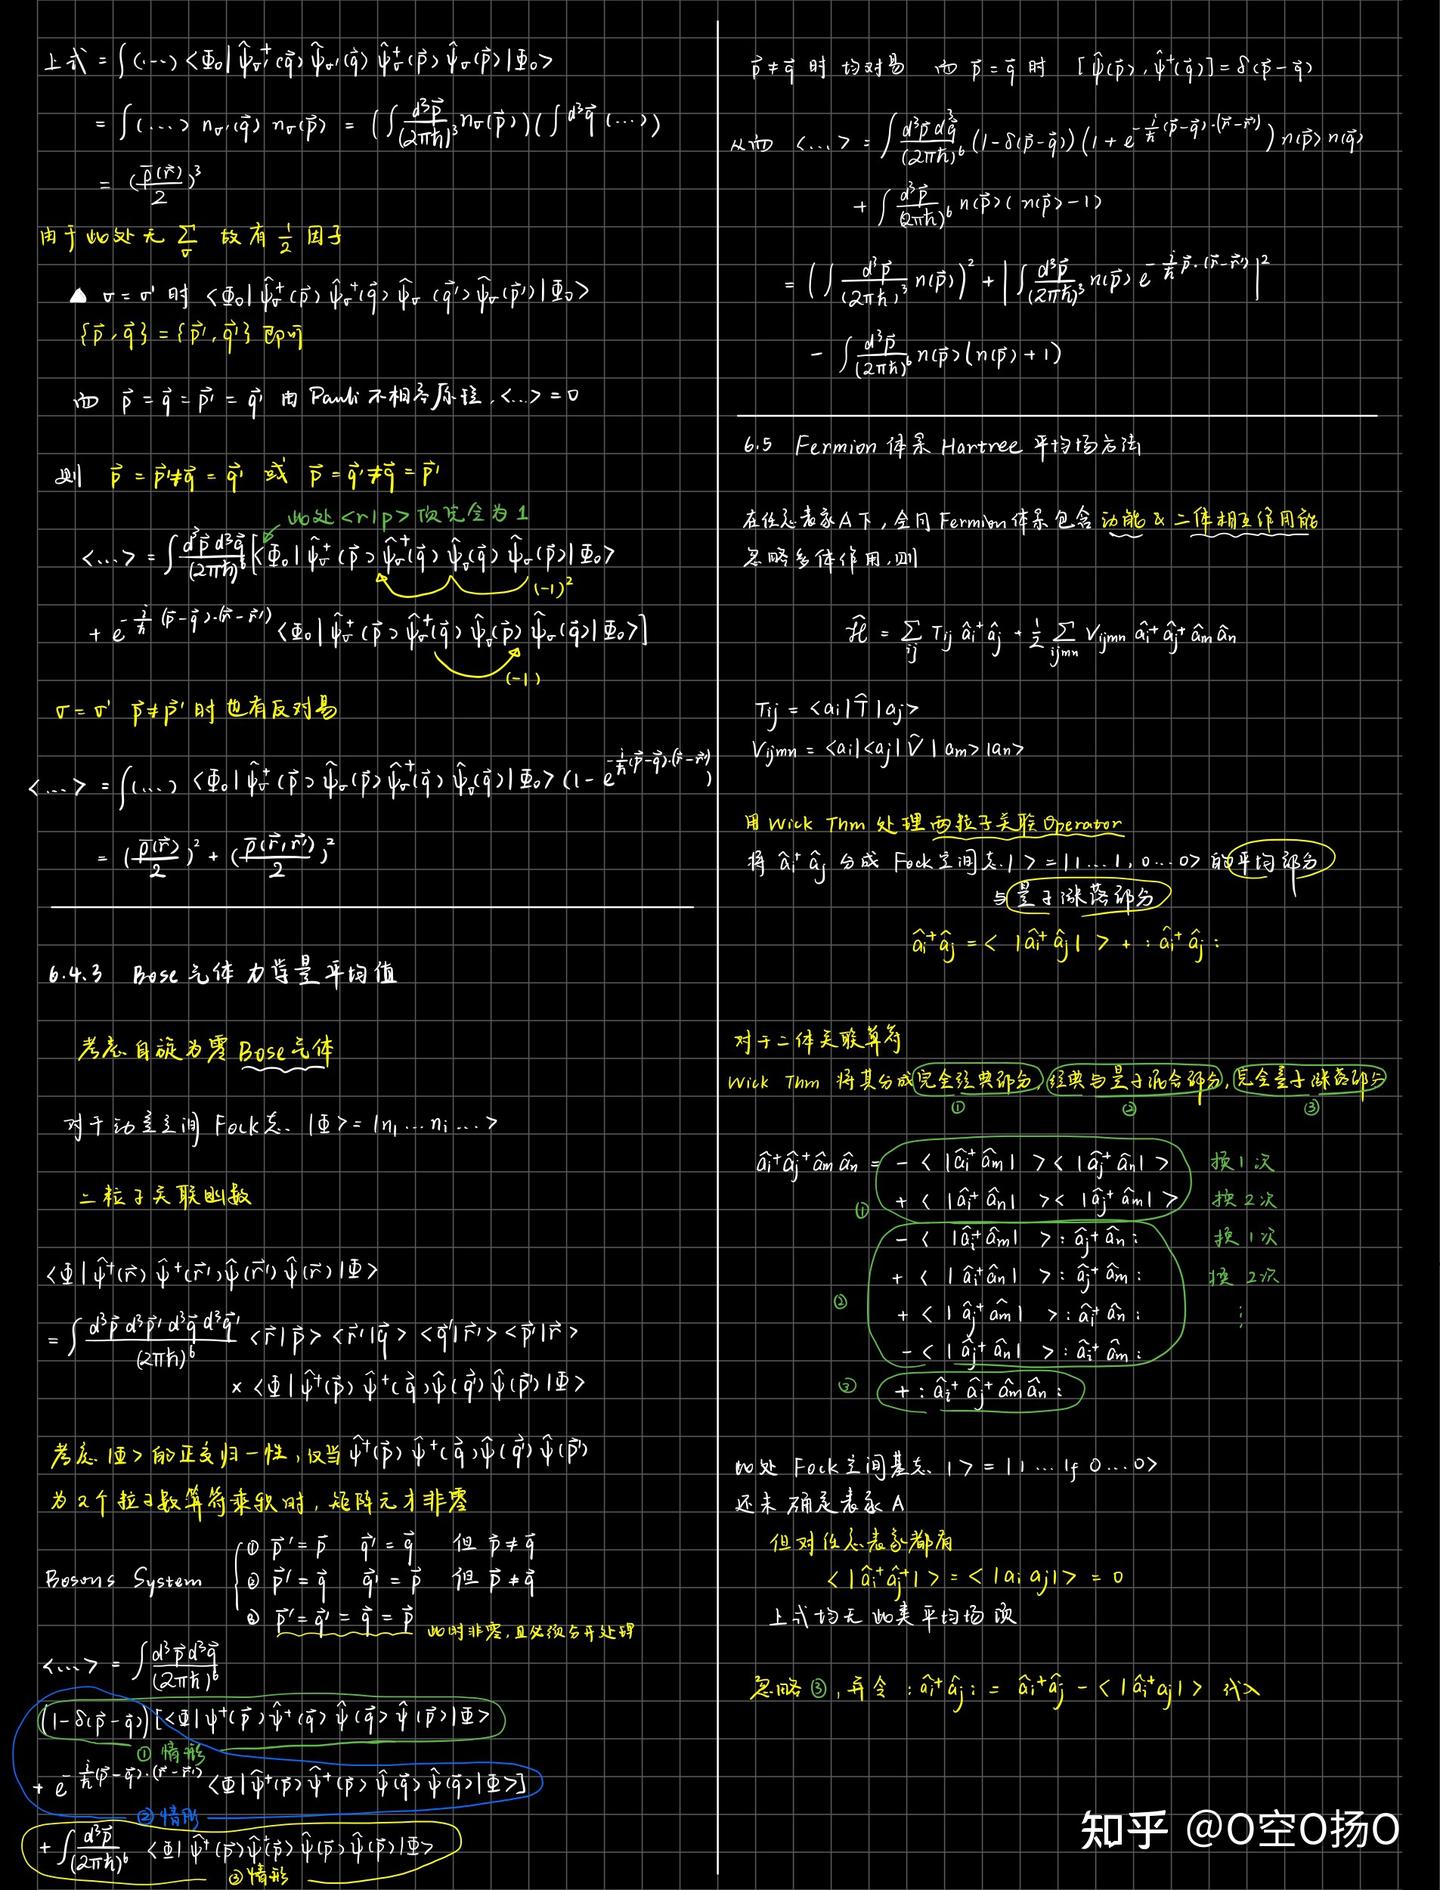 上式 = ∫(...) <Φ₀| ψ̂σ'⁺(q⃗) ψ̂σ'(q⃗) ψ̂σ⁺(p⃗) ψ̂σ(p⃗) |Φ₀>
= ∫(...) nσ'(q⃗) nσ(p⃗) = (∫ d³p⃗/(2πħ)³ nσ(p⃗)) (∫ d³q⃗ (...))
= (ρ̄(r⃗)/2)³
由于此处无 Σσ 故有 1/2 因子
▲ σ=σ' 时 <Φ₀| ψ̂σ⁺(p⃗) ψ̂σ⁺(q⃗) ψ̂σ(q⃗') ψ̂σ(p⃗') |Φ₀>
{p⃗, q⃗} = {p⃗', q⃗'} 即可
而 p⃗ = q⃗ = p⃗' = q⃗' 由 Pauli 不相容原理, <...> = 0
则 p⃗ = p⃗' ≠ q⃗ = q⃗' 或 p⃗ = q⃗' ≠ q⃗ = p⃗'
此处 <r|p> 项完全为 1
<...> = ∫ d³p⃗ d³q⃗/(2πħ)⁶ [<Φ₀| ψ̂σ⁺(p⃗) ψ̂σ⁺(q⃗) ψ̂σ(q⃗) ψ̂σ(p⃗) |Φ₀>
(-1)²
+ e^{-i/ħ (p⃗-q⃗)·(r⃗-r⃗')} <Φ₀| ψ̂σ⁺(p⃗) ψ̂σ⁺(q⃗) ψ̂σ(p⃗) ψ̂σ(q⃗) |Φ₀>]
(-1)
σ=σ' p⃗≠p⃗' 时也有反对易
<...> = ∫(...) <Φ₀| ψ̂σ⁺(p⃗) ψ̂σ(p⃗) ψ̂σ⁺(q⃗) ψ̂σ(q⃗) |Φ₀> (1 - e^{-i/ħ (p⃗-q⃗)·(r⃗-r⃗')})
= (ρ̄(r⃗)/2)² + (ρ̄(r⃗,r⃗')/2)²
6.4.3 Bose 气体力学量平均值
考虑自旋为零 Bose 气体
对于动量空间 Fock 态 |Φ> = |n₁...nᵢ...>
二粒子关联函数
<Φ| ψ̂⁺(r⃗) ψ̂⁺(r⃗') ψ̂(r⃗') ψ̂(r⃗) |Φ>
= ∫ d³p⃗ d³p⃗' d³q⃗ d³q⃗'/(2πħ)⁶ <r⃗|p⃗> <r⃗'|q⃗> <q⃗'|r⃗'> <p⃗'|r⃗>
× <Φ| ψ̂⁺(p⃗) ψ̂⁺(q⃗) ψ̂(q⃗') ψ̂(p⃗') |Φ>
考虑 |Φ> 的正交归一性, 仅当 ψ̂⁺(p⃗) ψ̂⁺(q⃗) ψ̂(q⃗') ψ̂(p⃗')
为 2 个粒子数算符乘积时, 矩阵元才非零
① p⃗' = p⃗ q⃗' = q⃗ 但 p⃗ ≠ q⃗
Bosons System ② p⃗' = q⃗ q⃗' = p⃗ 但 p⃗ ≠ q⃗
③ p⃗' = q⃗' = q⃗ = p⃗ 此时非零, 且必须分开处理
<...> = ∫ d³p⃗ d³q⃗/(2πħ)⁶
(1-δ(p⃗-q⃗)) [<Φ| ψ̂⁺(p⃗) ψ̂⁺(q⃗) ψ̂(q⃗) ψ̂(p⃗) |Φ>
① 情形
+ e^{-i/ħ (p⃗-q⃗)·(r⃗-r⃗')} <Φ| ψ̂⁺(p⃗) ψ̂⁺(p⃗) ψ̂(q⃗) ψ̂(q⃗) |Φ>]
② 情形
+ ∫ d³p⃗/(2πħ)⁶ <Φ| ψ̂⁺(p⃗) ψ̂⁺(p⃗) ψ̂(p⃗) ψ̂(p⃗) |Φ>
③ 情形
p⃗≠q⃗ 时 均对易 而 p⃗=q⃗ 时 [ψ̂(p⃗), ψ̂⁺(q⃗)] = δ(p⃗-q⃗)
从而 <...> = ∫ d³p⃗ d³q⃗/(2πħ)⁶ (1-δ(p⃗-q⃗)) (1 + e^{-i/ħ (p⃗-q⃗)·(r⃗-r⃗')}) n(p⃗) n(q⃗)
+ ∫ d³p⃗/(2πħ)⁶ n(p⃗) (n(p⃗)-1)
= (∫ d³p⃗/(2πħ)³ n(p⃗))² + |∫ d³p⃗/(2πħ)³ n(p⃗) e^{-i/ħ p⃗·(r⃗-r⃗')}|²
- ∫ d³p⃗/(2πħ)⁶ n(p⃗) (n(p⃗)+1)
6.5 Fermion 体系 Hartree 平均场方法
在任意表象 A 下, 全同 Fermion 体系包含动能 & 二体相互作用能
忽略多体作用, 则
Ĥ = Σij Tij âi⁺ âj + 1/2 Σijmn Vijmn âi⁺ âj⁺ âm ân
Tij = <ai|T̂|aj>
Vijmn = <ai|<aj| V̂ |am>|an>
用 Wick Thm 处理两粒子关联 Operator
将 âi⁺ âj 分成 Fock 空间态 | > = |1...1, 0...0> 的平均部分
与量子涨落部分
âi⁺ âj = < |âi⁺ âj| > + : âi⁺ âj :
对于二体关联算符
Wick Thm 将其分成完全经典部分, 经典与量子混合部分, 完全量子涨落部分
① ② ③
âi⁺ âj⁺ âm ân = - < |âi⁺ âm| > < |âj⁺ ân| > 换 1 次
① + < |âi⁺ ân| > < |âj⁺ âm| > 换 2 次
- < |âi⁺ âm| > : âj⁺ ân : 换 1 次
② + < |âi⁺ ân| > : âj⁺ âm : 换 2 次
+ < |âj⁺ âm| > : âi⁺ ân : ⋮
- < |âj⁺ ân| > : âi⁺ âm :
③ + : âi⁺ âj⁺ âm ân :
此处 Fock 空间基态 | > = |1...1f 0...0>
还未确定表象 A
但对任意表象都有
< |âi⁺ âj⁺| > = < |ai aj| > = 0
上式均无此类平均场项
忽略 ③, 并令 : âi⁺ âj : = âi⁺ âj - < |âi⁺ aj| > 代入
知乎 @O空O扬O